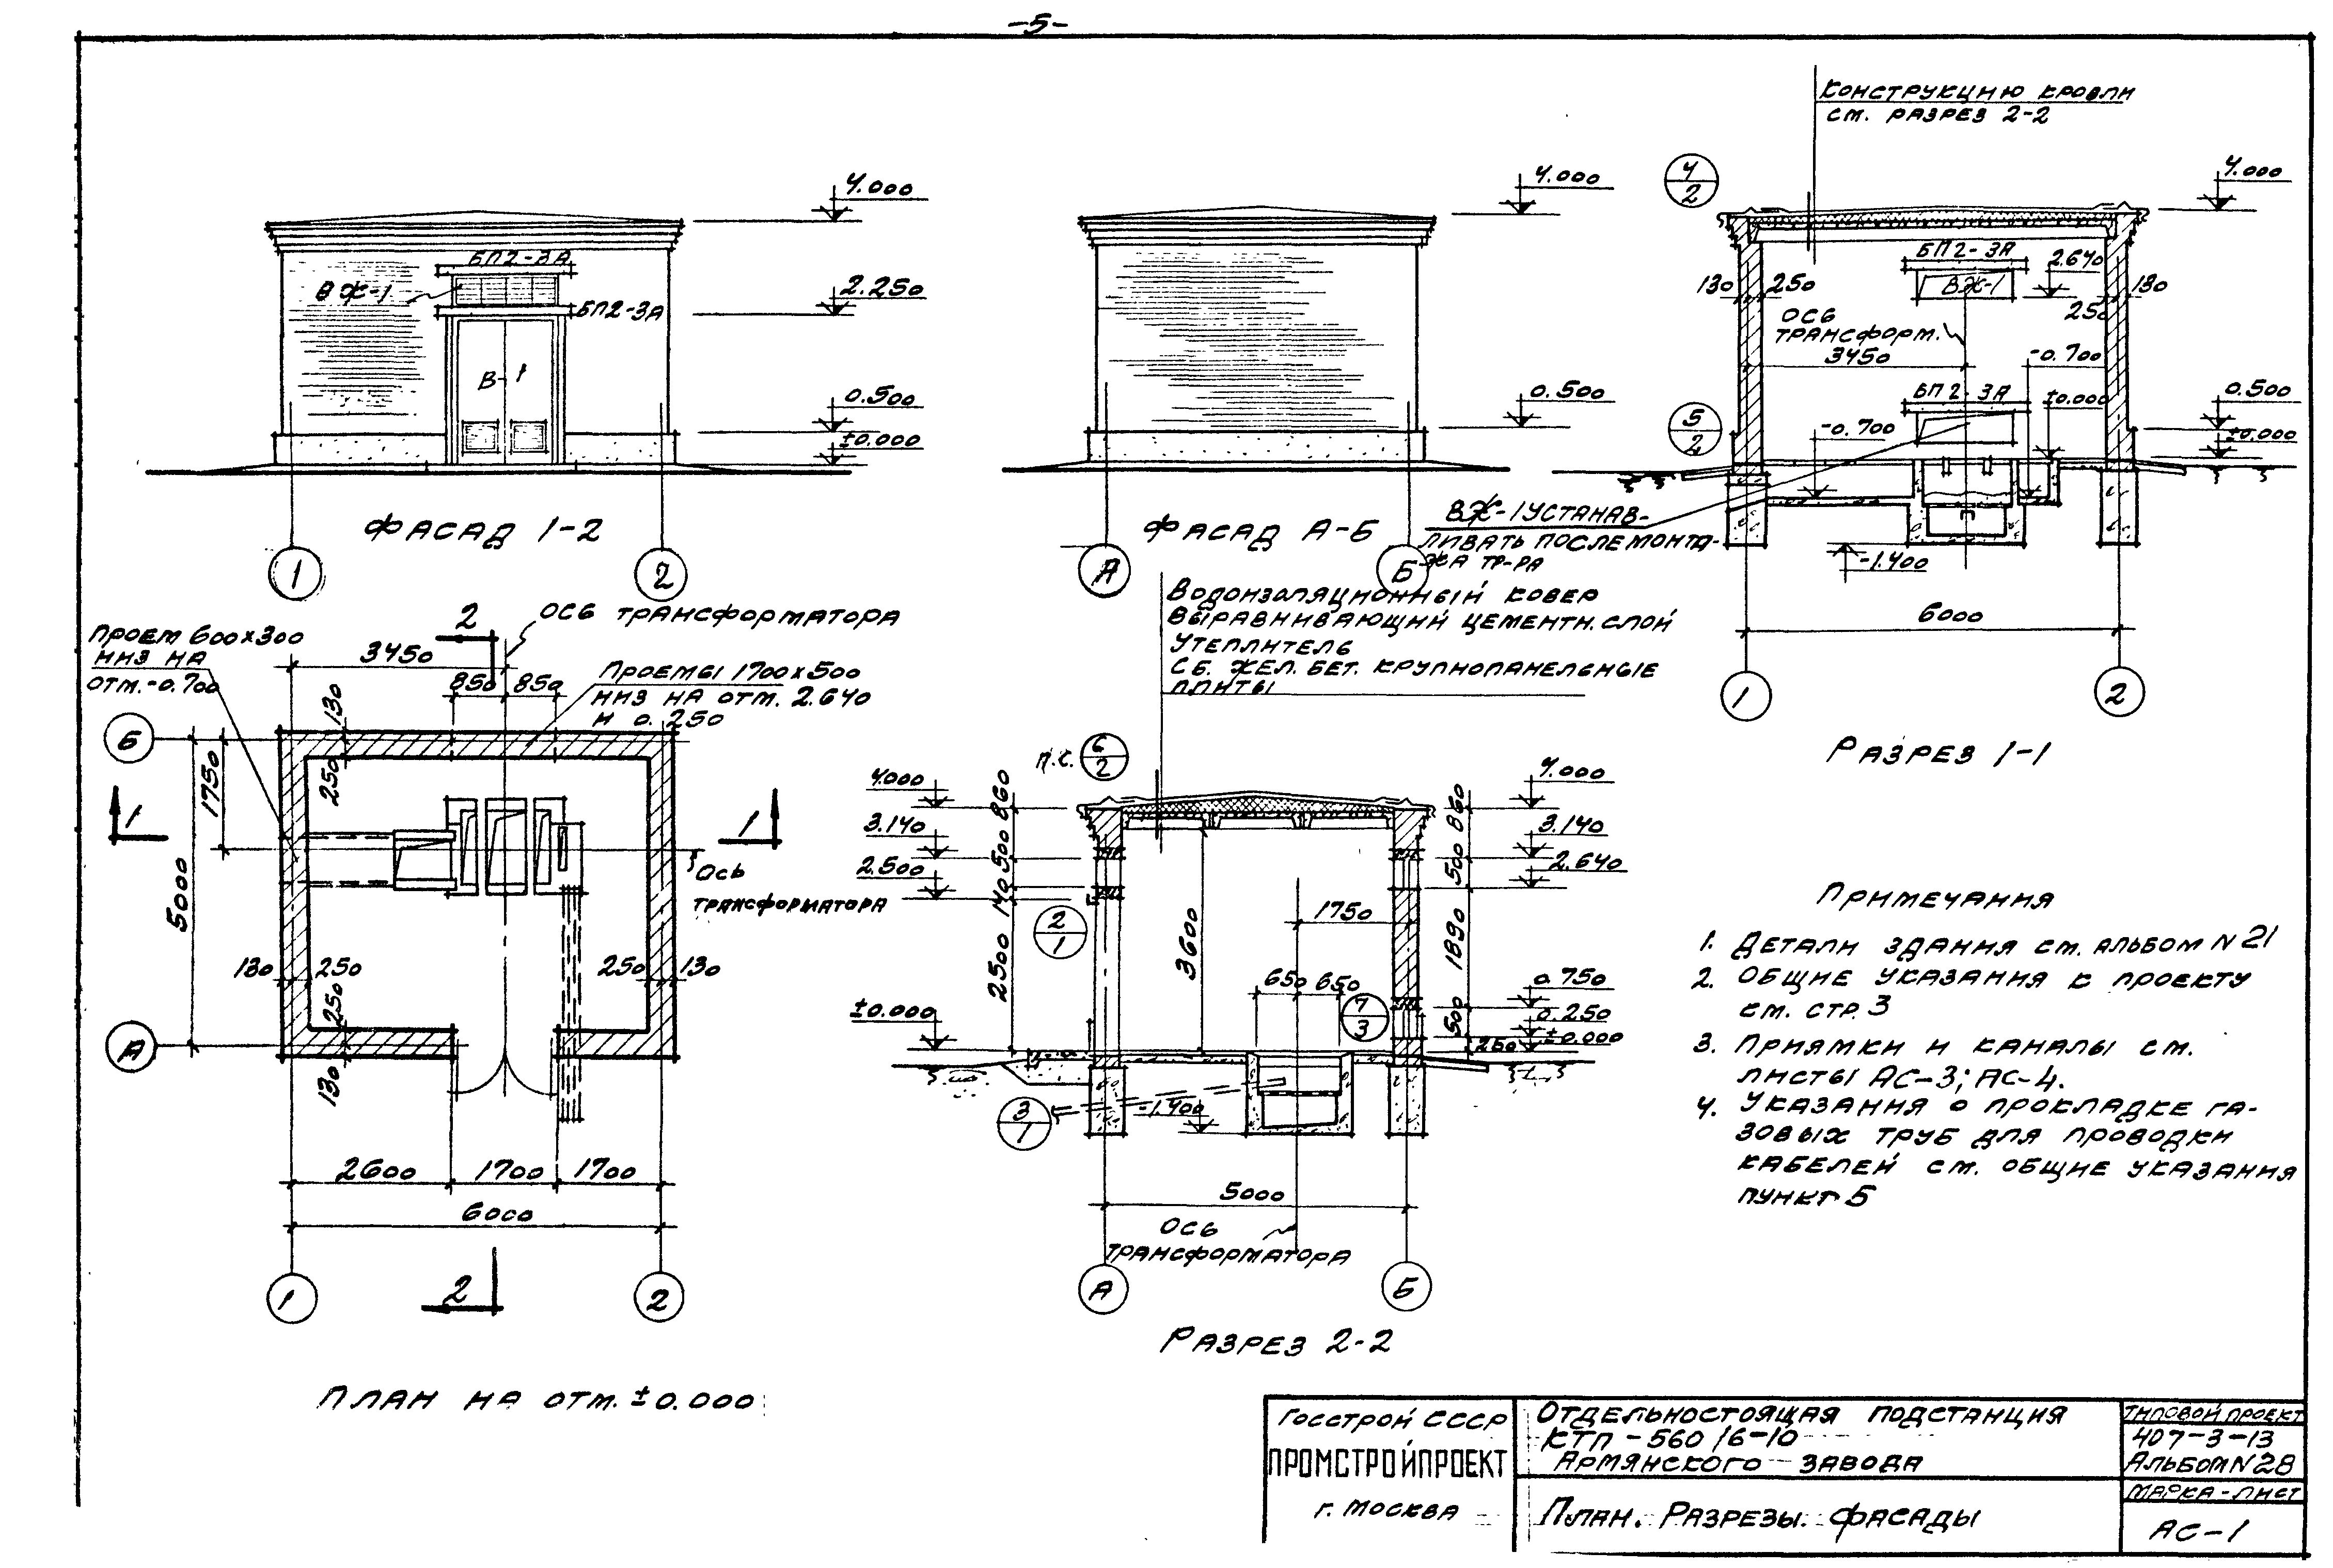 -5-
4.000
БП2-3А
ВЖ-1
2.250
БП2-3А
В-1
0.500
±0.000
ФАСАД 1-2
1
2
4.000
0.500
ФАСАД А-Б
А
Б
КОНСТРУКЦИЮ КРОВЛИ
СМ. РАЗРЕЗ 2-2
4
2
4.000
БП2-3А
2.640
ВЖ-1
130
250
130
250
ОСЬ
ТРАНСФОРМ.
3450
-0.700
БП2-3А
±0.000
0.500
±0.000
5
2
-0.700
ВЖ-1 УСТАНАВ-
ЛИВАТЬ ПОСЛЕ МОНТА-
ЖА ТР-РА
-1.400
6000
1
2
РАЗРЕЗ 1-1
ПРОЕМ 600х300
НИЗ НА
ОТМ.-0.700
2
ОСЬ ТРАНСФОРМАТОРА
3450
850
850
ПРОЕМЫ 1700х500
НИЗ НА ОТМ. 2.640
И 0.250
130
250
Б
1750
5000
1
1
ОСЬ
ТРАНСФОРМАТОРА
130
250
250
130
250
130
А
2600
1700
1700
6000
1
2
2
ПЛАН НА ОТМ. ±0.000
ВОДОИЗОЛЯЦИОННЫЙ КОВЕР
ВЫРАВНИВАЮЩИЙ ЦЕМЕНТН. СЛОЙ
УТЕПЛИТЕЛЬ
СБ. ЖЕЛ. БЕТ. КРУПНОПАНЕЛЬНЫЕ
ПЛИТЫ
П.С.
6
2
4.000
860
3.140
500
2.500
140
2
1
2500
3600
±0.000
4.000
860
3.140
500
2.640
1750
1890
650
650
7
3
0.750
500
0.250
250
±0.000
3
1
-1.400
5000
ОСЬ
ТРАНСФОРМАТОРА
А
Б
РАЗРЕЗ 2-2
ПРИМЕЧАНИЯ
1. ДЕТАЛИ ЗДАНИЯ СМ. АЛЬБОМ N 21
2. ОБЩИЕ УКАЗАНИЯ К ПРОЕКТУ
СМ. СТР. 3
3. ПРИЯМКИ И КАНАЛЫ СМ.
ЛИСТЫ АС-3; АС-4.
4. УКАЗАНИЯ О ПРОКЛАДКЕ ГА-
ЗОВЫХ ТРУБ ДЛЯ ПРОВОДКИ
КАБЕЛЕЙ СМ. ОБЩИЕ УКАЗАНИЯ
ПУНКТ 5
ГОССТРОЙ СССР
ПРОМСТРОЙПРОЕКТ
Г. МОСКВА
ОТДЕЛЬНОСТОЯЩАЯ ПОДСТАНЦИЯ
КТП-560/6-10
АРМЯНСКОГО ЗАВОДА
ПЛАН. РАЗРЕЗЫ. ФАСАДЫ
ТИПОВОЙ ПРОЕКТ
407-3-13
АЛЬБОМ N 28
МАРКА-ЛИСТ
АС-1